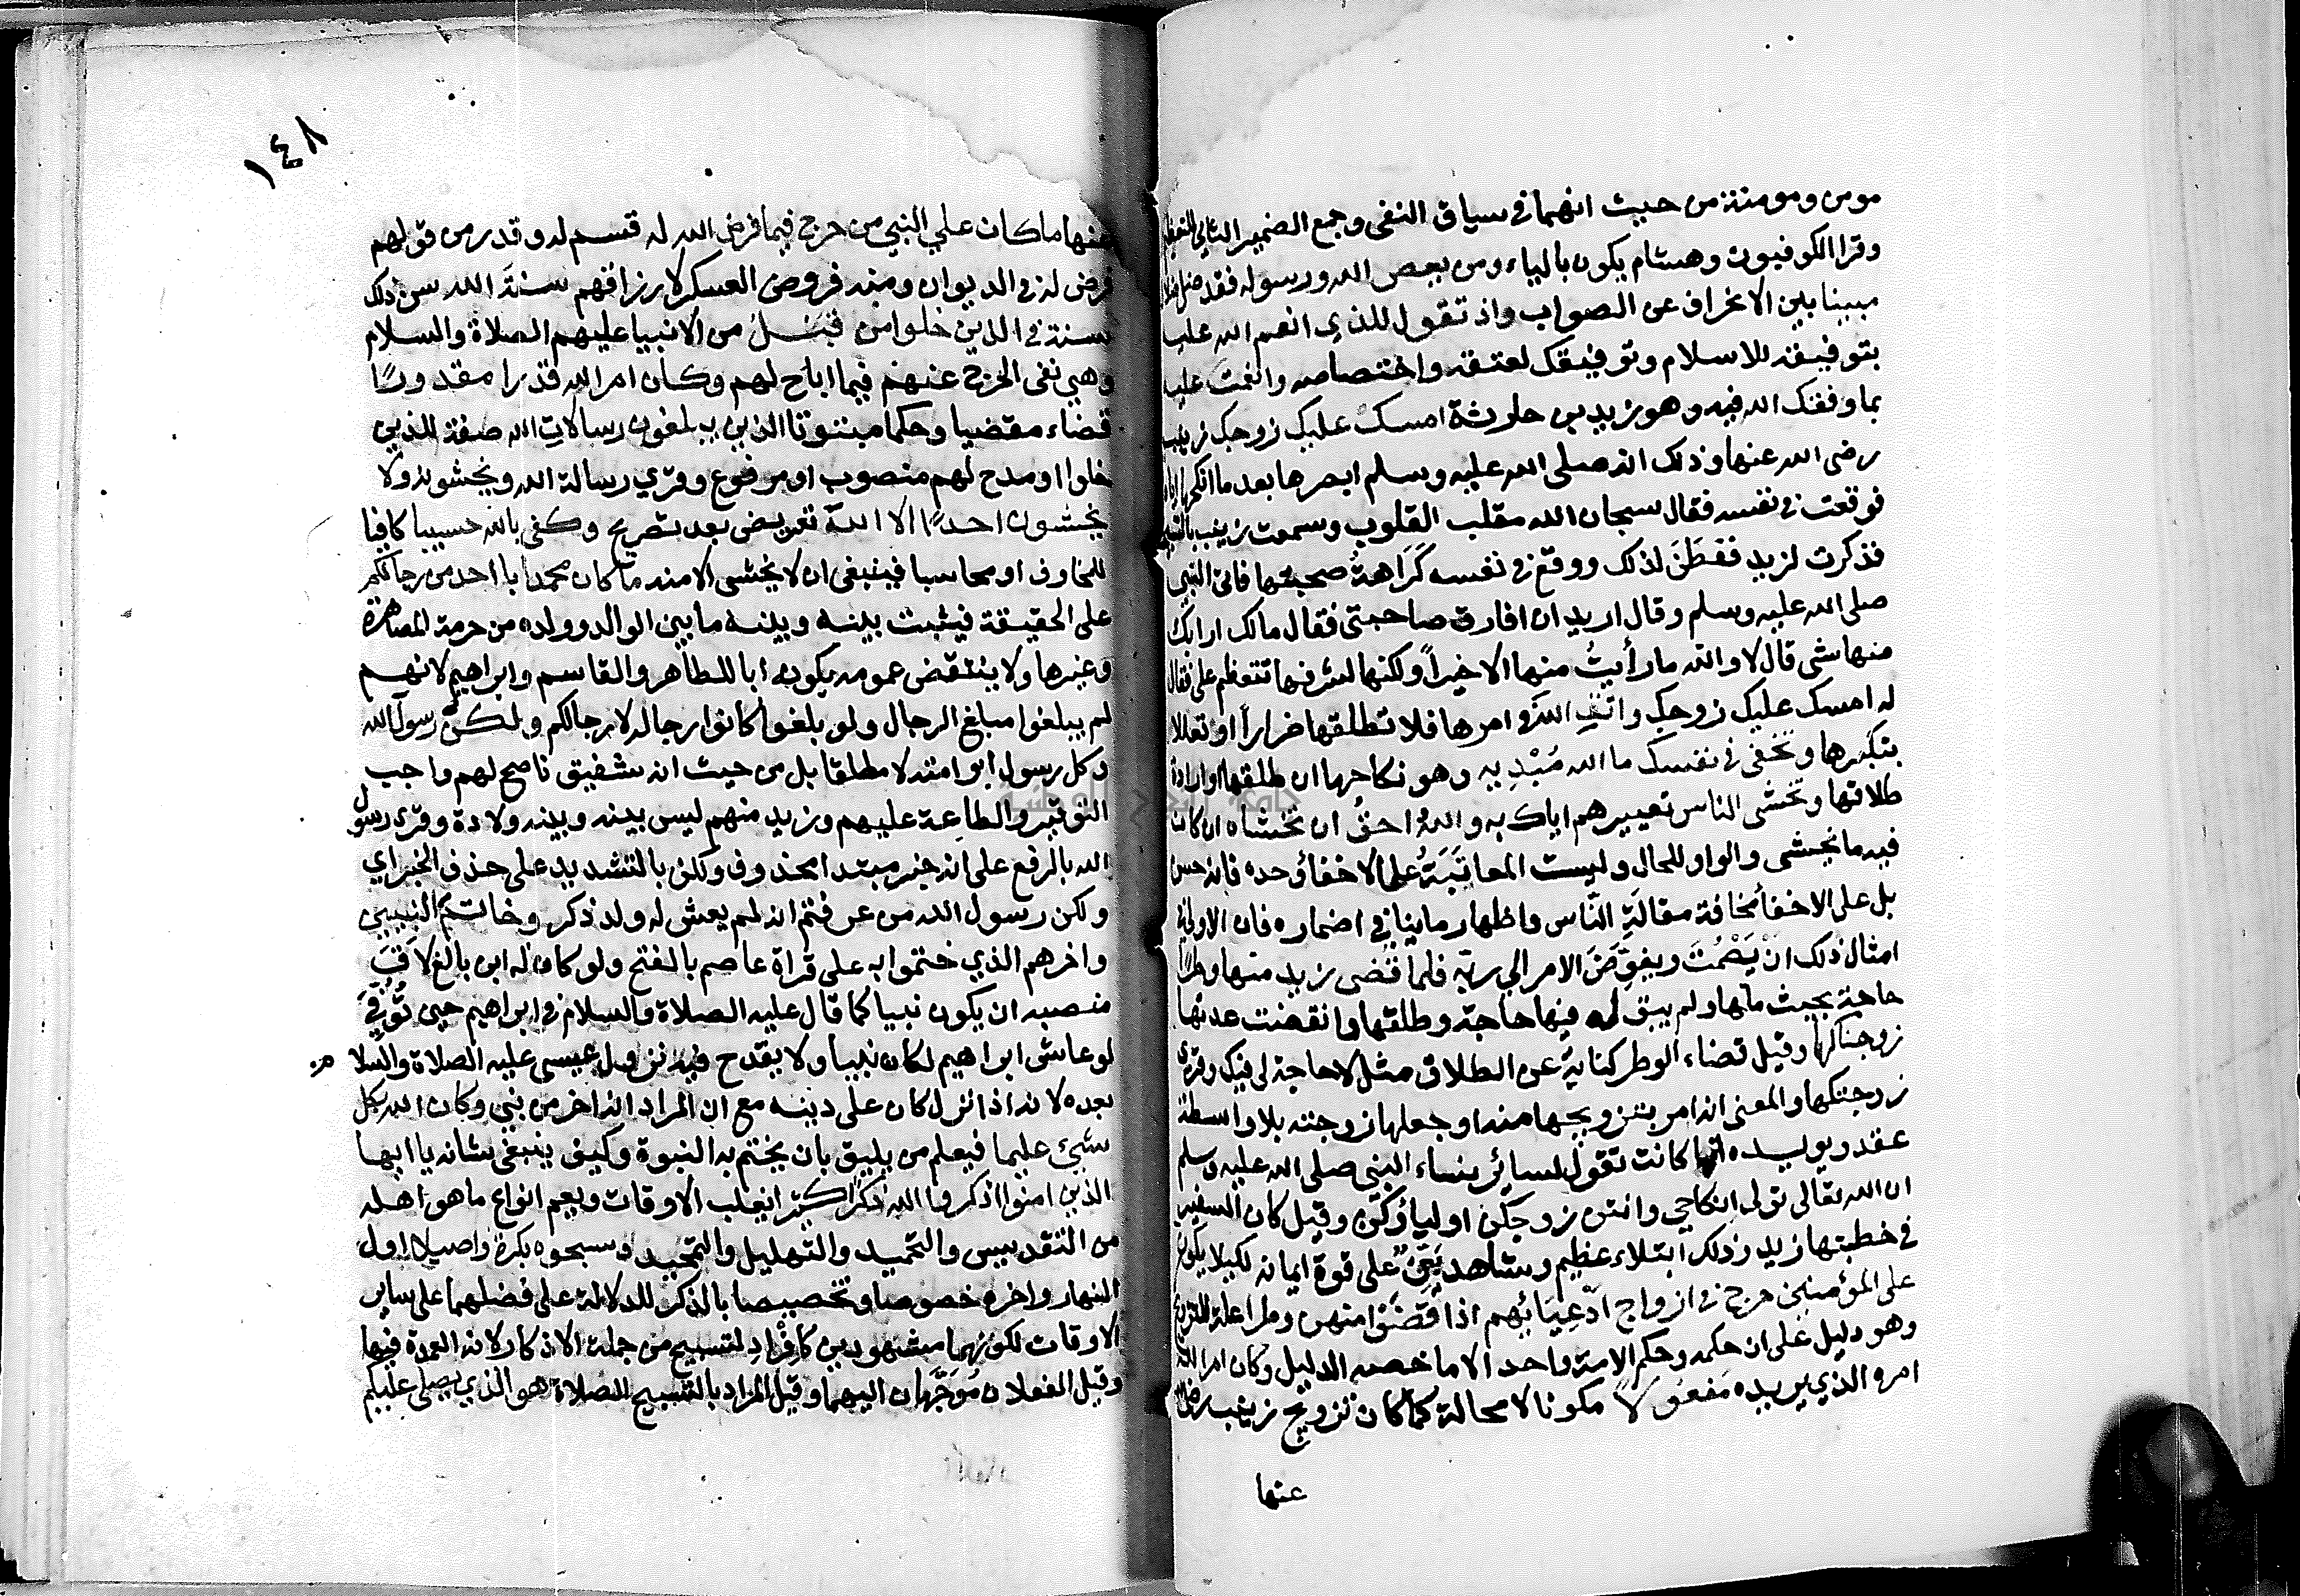 مومن ومومنة من حيث انهما في سياق النفي وجمع الضمير الثاني للتعظيم
وقرا الكوفيون وهشام يكون بالياء ومن يعص الله ورسوله فقد ضل ضلالا
مبينا بين الانحراف عن الصواب واذ تقول للذي انعم الله عليه
بتوفيقه للاسلام وتوفيقك لعتقه واختصاصه وانعمت عليه
بما وفقك الله فيه وهو زيد بن حارثة امسك عليك زوجك زينب
رضي الله عنها وذلك انه صلى الله عليه وسلم ابصرها بعد ما انكحها اياه
فوقعت في نفسه فقال سبحان الله مقلب القلوب وسمعت زينب بالتسبيحة
فذكرت لزيد ففَطَنَ لذلك ووقع في نفسه كَرَاهةُ صحبتها فاتى النبي
صلى الله عليه وسلم وقال اريد ان افارق صاحبتي فقال مالك ارابك
منها شي قال لا والله ما رأيتُ منها الا خيراً ولكنها لشرفها تتعظم علي فقال
له امسك عليك زوجك واتقِ اللهَ في امرها فلا تطلقها ضراراً او تعللا
بتكبرها وتخفي في نفسك ما الله مُبْدِيه وهو نكاحها ان طلقها او ارادة
طلاقها وتخشى الناس تعييرهم اياك به واللهُ احقُ ان تخشاه ان كان
فيه ما يخشى والواو للحال وليست المعاتَبَةُ على الاخفاء وحده فانه حسن
بل على الاخفأ مخافة مقالَةِ النَّاس واظهار ما ينافي اضماره فان الاولى في
امثال ذلك انْ يَصْمُتَ ويفوِّضَ الامر الي ربّه فلما قضى زيد منها وطرًا
حاجة بحيث ملها ولم يبق له فيها حاجة وطلقها وانقضت عدتها
زوجناكها وقيل قضاء الوطر كناية عن الطلاق مثل لا حاجة لي فيك وقرئ
زوجتكها والمعنى انه امر بتزويجها منه او جعلها زوجته بلا واسطة
عقد ويويده انها كانت تقول لسائر نساء النبي صلى الله عليه وسلم
ان الله تعالى تولى انكاحي وانتن زوجكن اولياؤكن وقيل كان السفير
في خطبتها زيد وذلك ابتلاء عظيم وشاهد بَيِّنٌ على قوة ايمانه لكيلا يكون
على المؤمنين حرج في ازواج ادْعِيَائِهم اذا قَضَوْا منهن وطرا علة للتزويج
وهو دليل على ان حكمه وحكم الامة واحد الا ما خصه الدليل وكان امر الله
امره الذي يريده مَفعُولاً مكونا لا محالة كما كان تزويج زينب رضي الله
عنها
١٤٨
عنها ما كان علي النبي من حرج فيما فرض الله له قسم له وقدر من قولهم
فرض له في الديوان ومنه فروض العسكر لارزاقهم سنةَ الله سن ذلك
سنة في الذين خلوا من قبل من الانبيا عليهم الصلاة والسلام
وهي نفي الحرج عنهم فيما اباح لهم وكان امر الله قدرا مقدورًا
قضاء مقضيا وحكما مبتوتا الذين يبلغون رسالاتِ الله صفة للذين
خلوا او مدح لهم منصوب او مرفوع وقرئ رسالة الله ويخشونه ولا
يخشون احدًا الا الله تعريض بعد تصريح وكفى بالله حسيبا كافيا
للمخاوف او محاسبا فينبغي ان لا يخشى الا منه ما كان محمد ابا احد من رجالكم
على الحقيقة فيثبت بينه وبينه ما بين الوالد وولده من حرمة المصاهرة
وغيرها ولا ينتقض عمومه بكونه ابا للطاهر والقاسم وابراهيم لانهم
لم يبلغوا مبلغ الرجال ولو بلغوا كانوا رجاله لا رجالكم ولكن رسول الله
وكل رسول ابو امته لا مطلقا بل من حيث انه شفيق ناصح لهم واجب
التوقير والطاعة عليهم وزيد منهم ليس بينه وبينه ولادة وقرئ رسول
الله بالرفع على انه خبر مبتدا محذوف ولكنّ بالتشديد على حذف الخبر اي
ولكن رسول الله من عرفتم انه لم يعش له ولد ذكر وخاتم النبيين
واخرهم الذي ختموا به على قراة عاصم بالفتح ولو كان له ابن بالغ لاقَ
منصبه ان يكون نبيا كما قال عليه الصلاة والسلام في ابراهيم حين تُوُفِّيَ
لو عاش ابراهيم لكان نبيا ولا يقدح فيه نزول عيسى عليه الصلاة والسلام
بعده لانه اذا نزل كان على دينه مع ان المراد انه اخر من نبي وكان الله بكل
شيئ عليما فيعلم من يليق بان يختم به النبوة وكيف ينبغي شانه يا ايها
الذين امنوا اذكروا الله ذكرًا كثيرا يغلب الاوقات ويعم انواع ما هو اهله
من التقديس والتحميد والتهليل والتمجيد وسبحوه بكرة واصيلا اول
النهار واخره خصوصا وتخصيصا بالذكر للدلالة على فضلهما على ساير
الاوقات لكونهما مشهودين كافرادِ لتسبيح من جملة الاذكار لانه العمدة فيها
وقيل الفعلان مُوَجَّهان اليهما وقيل المراد بالتسبيح الصلاة هو الذي يصلي عليكم